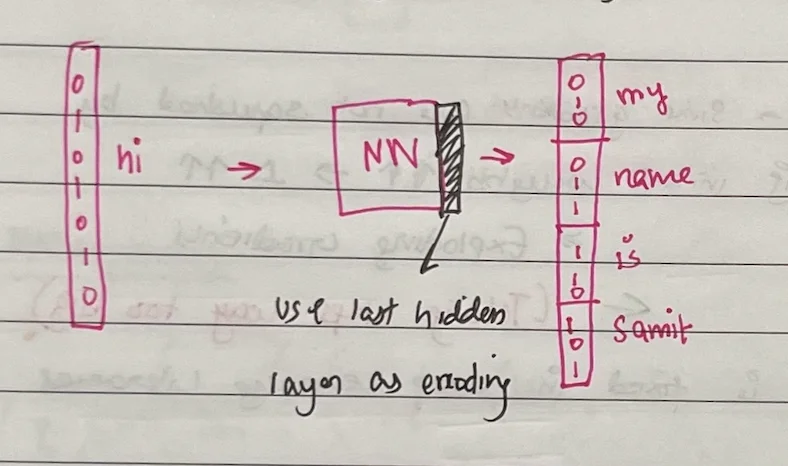 0
1
0
1
0
1
0
hi
NN
0
1
0
my
0
1
1
name
1
1
0
is
1
0
1
Samit
use last hidden
layer as encoding